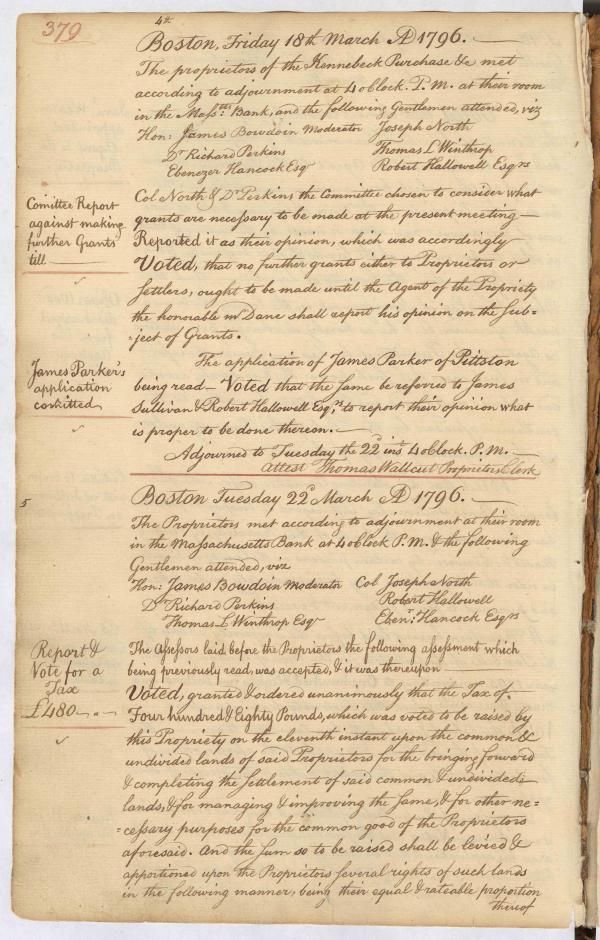 379
4th
Boston, Friday 18th March AD 1796.
The proprietors of the Kennebeck Purchase &c met
according to adjournment at 4 oClock. P.M. at their room
in the Massts: Bank, and the following Gentlemen attended, viz
Hon: James Bowdoin Moderator Joseph North
Dr Richard Perkins Thomas L Winthrop
Ebenezer Hancock Esqr Robert Hallowell Esqrs
Comittee Report
against making
further Grants
till
Col North & Dr Perkins the Committee chosen to consider what
grants are necessary to be made at the present meeting
Reported it as their opinion, which was accordingly
Voted, that no further grants either to Proprietors or
Settlers, ought to be made until the Agent of the Propriety
the honorable mr Dane shall report his opinion on the Sub-
ject of Grants.
James Parker's
application
comitted
The application of James Parker of Pittston
being read - Voted that the same be referred to James
Sullivan & Robert Hallowell Esqrs to report their opinion what
is proper to be done thereon.
Adjourned to Tuesday the 22d inst 4 oClock. P.M.
attest Thomas Wallcut Proprietors Clerk
5
Boston Tuesday 22d March AD 1796.
The Proprietors met according to adjournment at their room
in the Massachusetts Bank at 4 oClock P.M. & the following
Gentlemen attended, viz
Hon: James Bowdoin Moderator Col Joseph North
Dr Richard Perkins Robert Hallowell
Thomas L Winthrop Esqr Ebenr: Hancock Esqrs
Report &
Vote for a
Tax
£480 - " -
The Assessors laid before the Proprietors the following assessment which
being previously read, was accepted, & it was thereupon
Voted, granted & ordered unanimously that the Tax of
Four hundred & Eighty Pounds, which was voted to be raised by
this Propriety on the eleventh instant upon the common &
undivided lands of said Proprietors for the bringing forward
& completing the Settlement of said common & undivided
lands, & for managing & improving the same, & for other ne=
=cessary purposes for the common good of the Proprietors
aforesaid. And the sum so to be raised shall be levied &
apportioned upon the Proprietors several rights of such lands
in the following manner, being their equal & rateable proportion
thereof